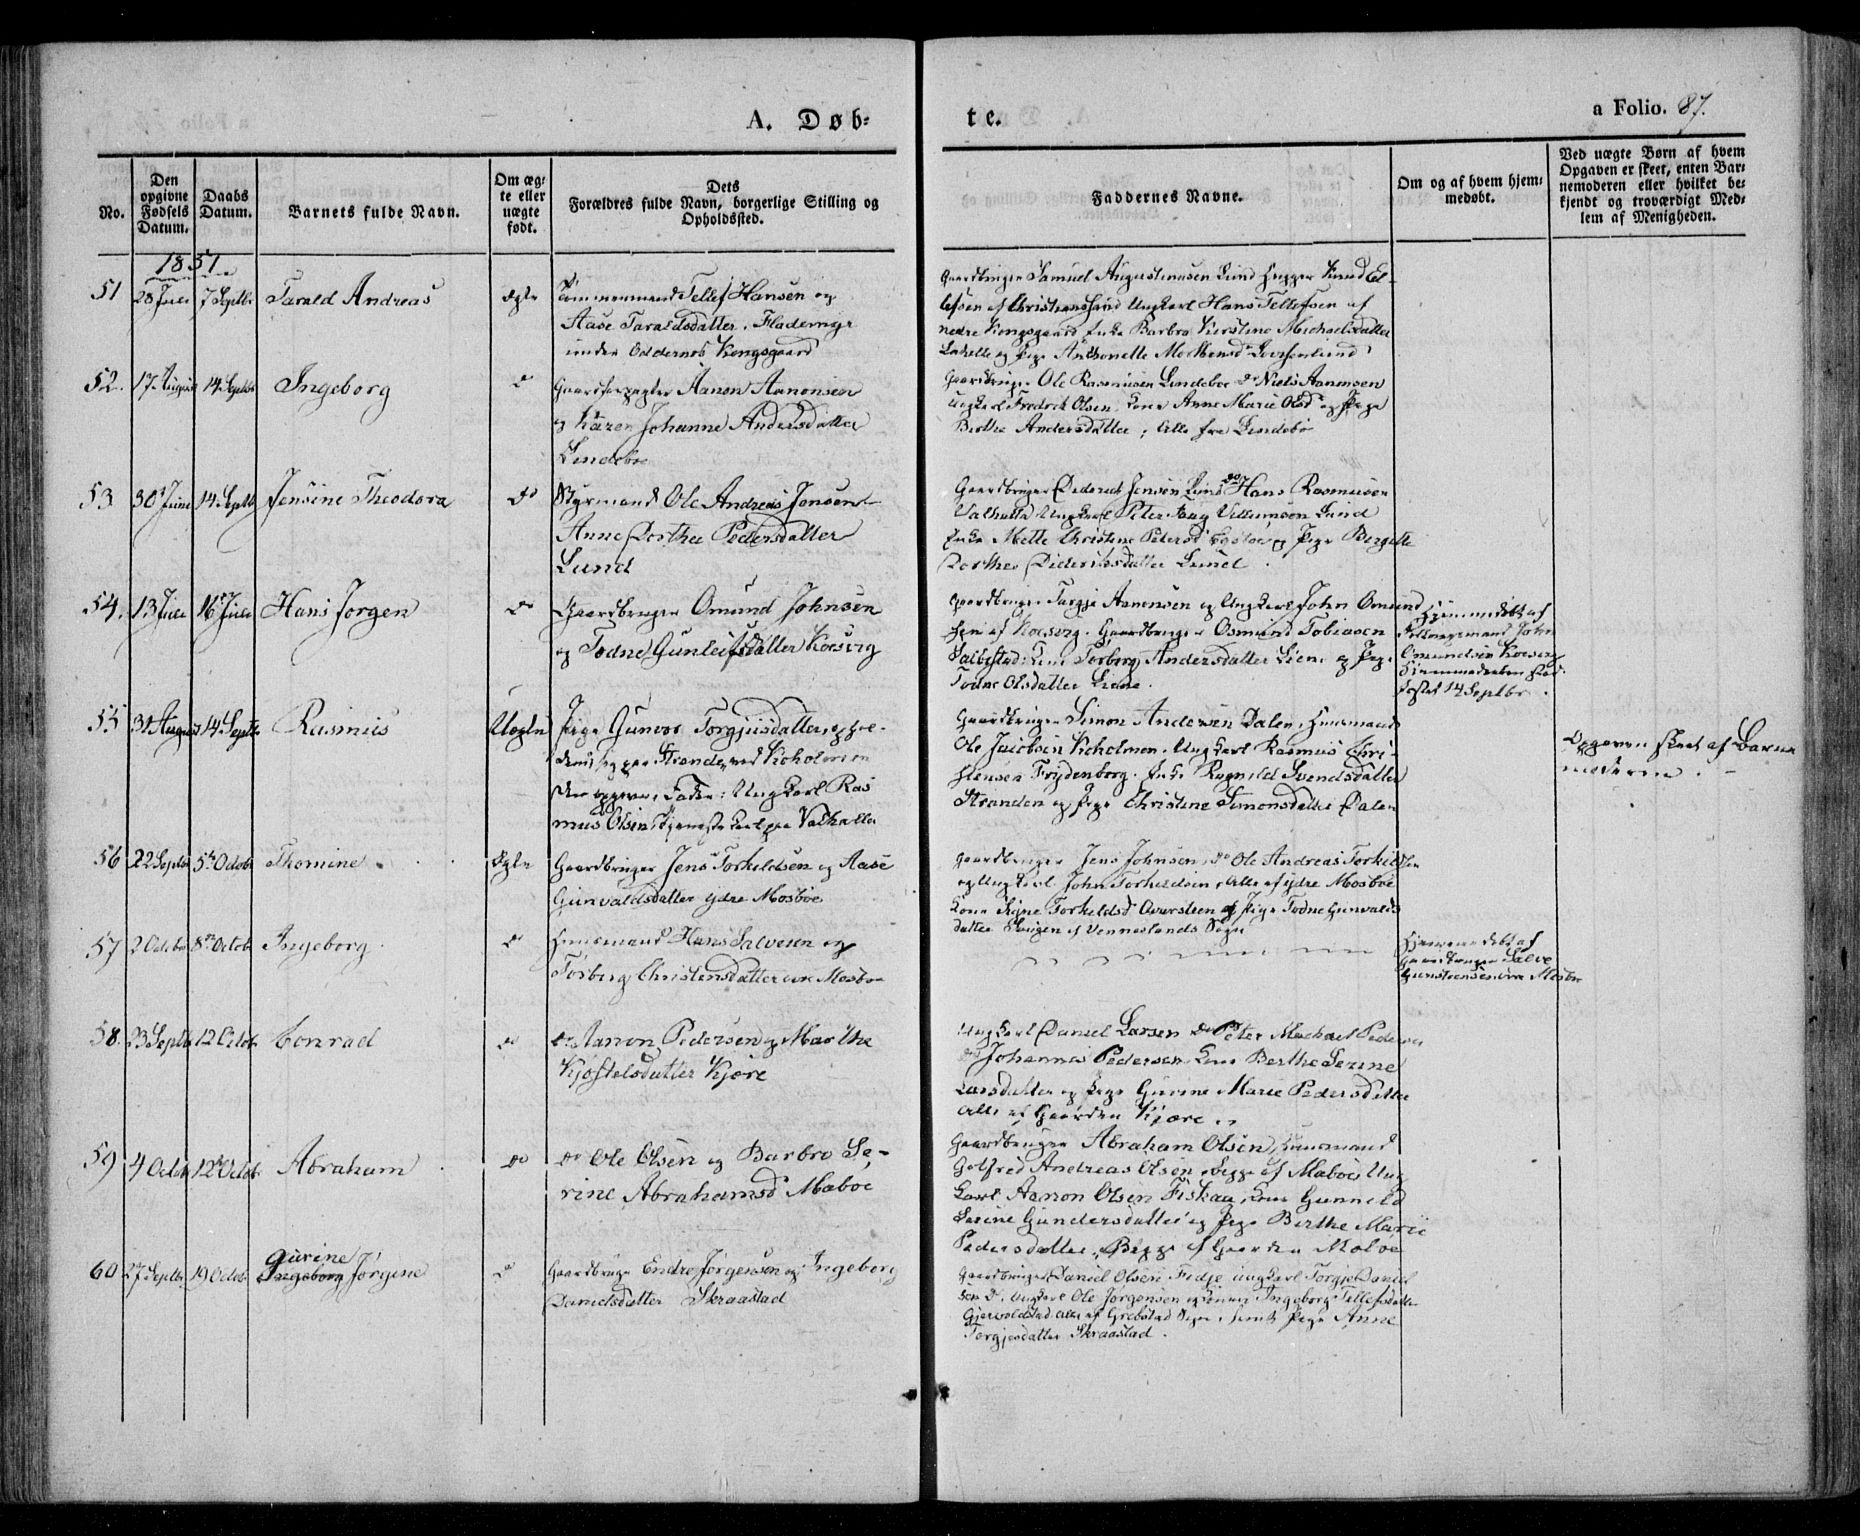 A. Døb-
te.
a Folio. 87.
No.
Den opgivne Fødsels Datum.
Daabs Datum.
Barnets fulde Navn.
Om ægte eller uægte født.
Dets
Forældres fulde Navn, borgerlige Stilling og
Opholdssted.
Faddernes Navne.
Om og af hvem hjem-
medøbt.
Ved uægte Børn af hvem
Opgaven er skeet, enten Bar-
nemoderen eller hvilket be-
kjendt og troværdigt Med-
lem af Menigheden.
1851.
51 28 Juli 7 Septbr Tarald Andreas ægte
Tømmermand Tellef Hansen og
Aase Taraldsdatter, Flademyr
under Oddernes Kongsgaard
Gaardbruger Samuel Augustinusen Lund Hugger Knud El-
lefsen af Christianssand Ungkarl Hans Tellefsen af
nedre Kongsgaard Enke Barbro Kirstine Michaelsdatter
og Pige Anthonette
52. 17 August 14 Septbr Ingeborg do
Gaardforpagter Aanon Aanonsen
og Karen Johanne Andersdatter
Lindebøe
Gaardbruger Ole Rasmusen Lindeboe do Niels Aanonsen
Ungkarl Fredrik Olsen, Kone Anne Marie Olsd og Pige
Berthe Andersdatter, Alle fra Lindebø
53 30 Juni 14 Septb Jensine Theodora do
Styrmand Ole Andreas Jensen
Anne Dorthea Pedersdatter
Lund
Gaardbruger Diderich Jensen Lund do Hans Rasmusen
Valhalla Ungkarl Peter Aug Villumsen Lund
Enke Mette Christine Pedersd og Pige Bergitte
Dorthea Dideriksdatter Lund.
54. 13 Juli 16 Juli Hans Jørgen do
Gaardbruger Omund Johnsen
og Todne Gunleifsdatter Kosvig
Gaardbruger Torgje Aanonsen og Ungkarl John Omund
sen af Kosvig. Gaardbruger Osmund Tobiasen
Kone Torborg Andersdatter Lien og Pige
Todne Olsdatter Liene.
Hjemmedøbt af
John
Omundsen Kosvig
Hjemmedaaben stad-
fæstet 14 Septbr.
55 31 August 14 Septb Rasmus Uægte
Pige Gunvor Torgjusdatter, ophol-
dende sig paa Strande ved Kiholmen
Den opgivne Fader: Ungkarl Ras
mus Olsen, tjenestekarl paa Valhalla
Gaardbruger Simon Andersen Dalen, Huusmand
Ole Jacobsen Kiholmen, Ungkarl Rasmus Chri-
stensen Frydenborg. Enke Ragnild Svendsdatter
Stranden og Pige Christine Simonsdatter Dalen
Opgaven skeet af Barne
moderen.
56 22 Septbr 5 Octobr Thomine ægte
Gaardbruger Jens Torkildsen og Aase
Gunvaldsdatter ydre Mosbøe
Gaardbruger Jens Johnsen, do Ole Andreas Torkild sen
og Ungkarl John Torkildsen, Alle af ydre Mosbøe
Kone Signe Torkildsd og Pige Todne Gunvalds
datter af Venneslands Sogn
57 2 Octobr 8 Octobr Ingeborg do
Huusmand Hans Salvesen og
Torborg Christensdatter Mosbøe
Hjemmedøbt af
Gaardbruger Salve
Mosbøe
58. 23 Septb 12 Octobr Conrad do
do Aanon Pedersen og Marthe
Kjøstelsdatter Kjøre
Ungkarl Daniel Larsen do Peter Michael Pedersen
do Johannes Pedersen Kone Berthe Serine
Larsdatter og Pige Gurine Marie Pedersdatter
Alle af Gaarden Kjøre.
59 4 Octobr 12 Octobr Abraham do
do Ole Olsen og Barbro Se-
rine Abrahamsd Moboe
Gaardbruger Abraham Olsen, Huusmand
Gotfred Andreas Olsen, begge af Maboe, Ung
karl Aanon Olsen Fiskaa, Kone Gunnild
Serine Gundersdatter og Pige Berthe Marie
Pedersdatter, Begge af Gaarden Moboe
60 27 Septbr 19 Octobr Gurine
Ingeborg Jørgine do
Gaardbruger Endre Jørgensen og Ingeborg
Danielsdatter Skraastad
Gaardbruger Daniel Olsen Fidje Ungkarl Torgje Daniel
sen do, Ungkarl Ole Jørgensen og Kone Ingeborg Tellefsdatter
Gjervoldstad Alle af Grebstad Sogn, samt Pige Anne
Torgjesdatter Skraastad.